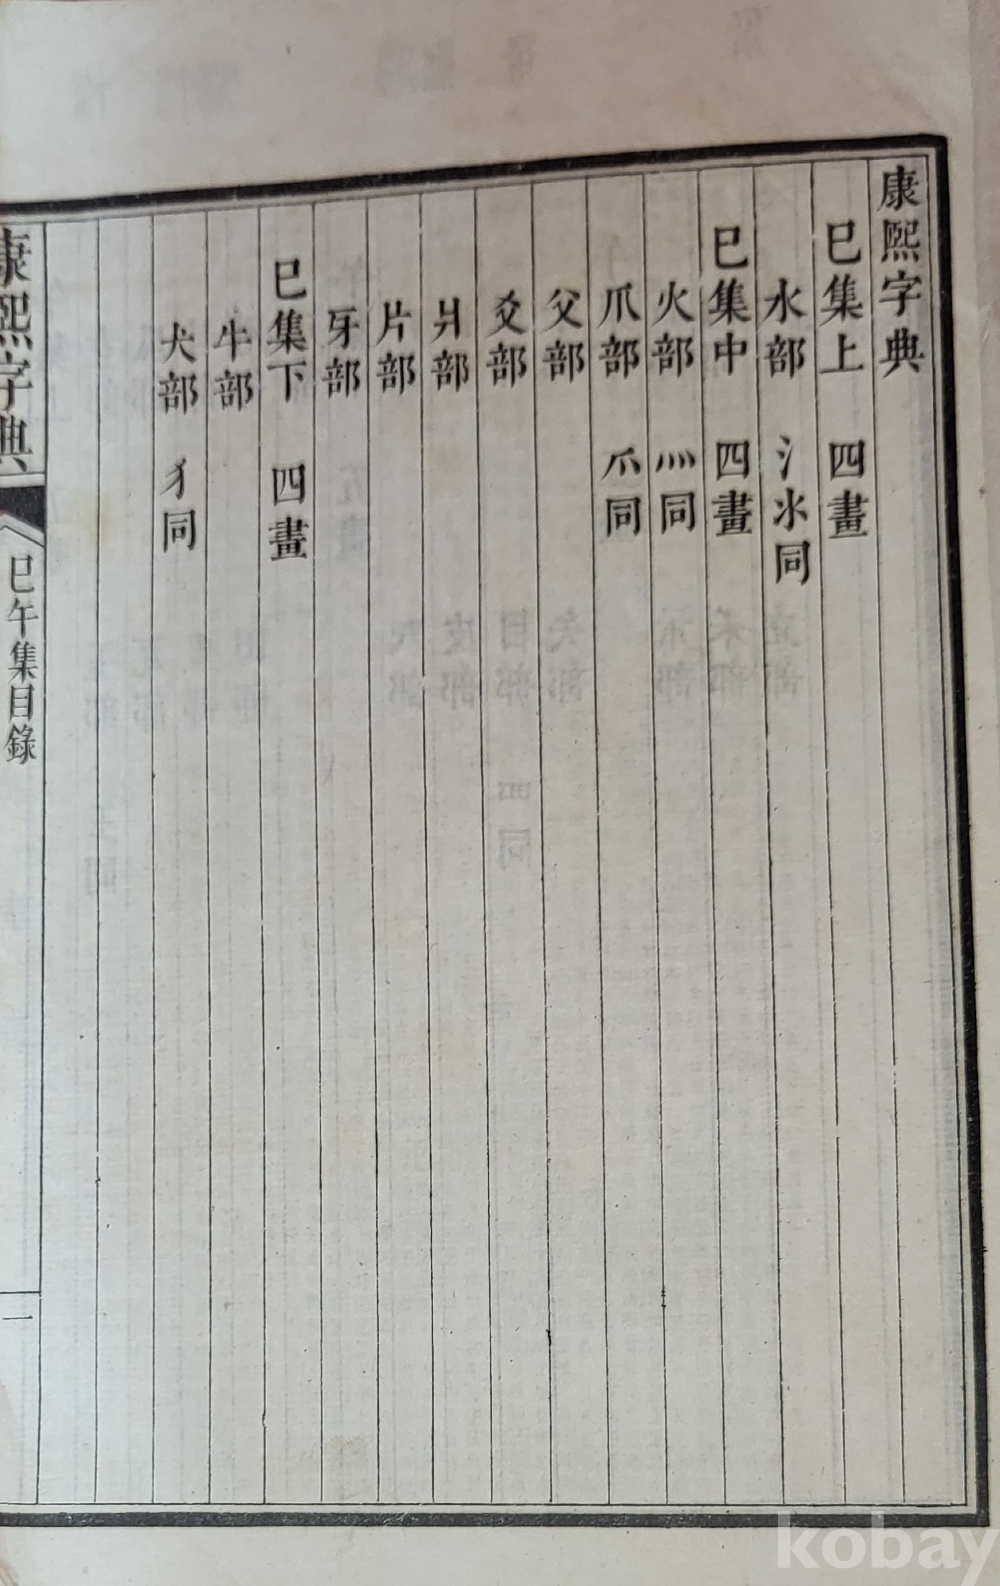 康熙字典
巳集上 四畫
水部 氵氺同
巳集中 四畫
火部 灬同
爪部 爫同
父部
爻部
爿部
片部
牙部
巳集下 四畫
牛部
犬部 犭同
康熙字典
巳午集目錄
一
kobay